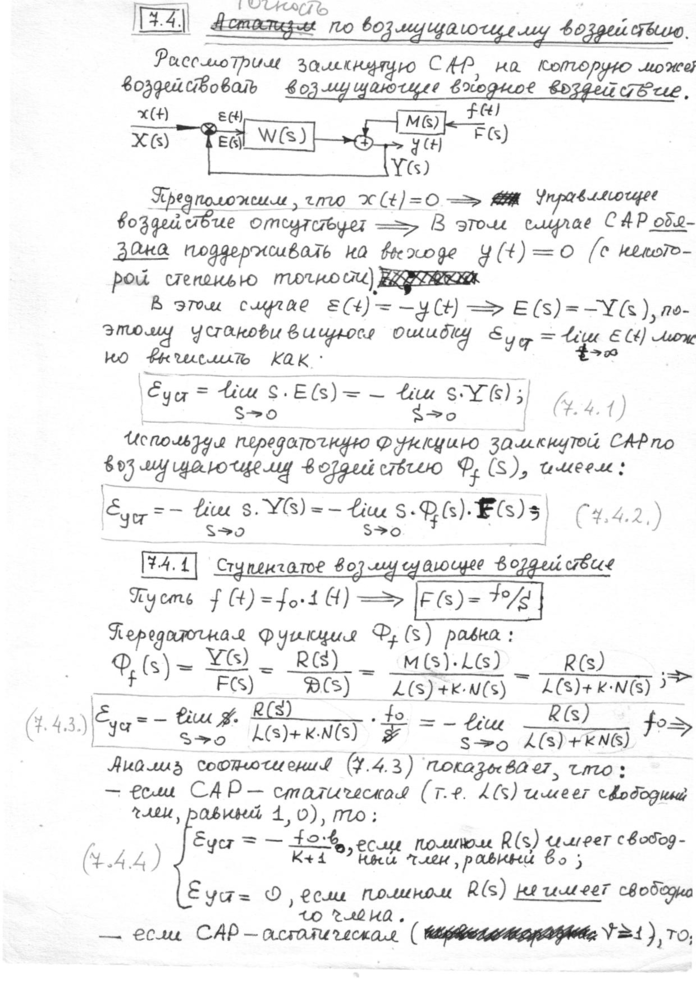 Точность
7.4. Астатизм по возмущающему воздействию.
Рассмотрим замкнутую САР, на которую может
воздействовать возмущающее входное воздействие.
x(t) ε(t) M(s) f(t)
X(s) E(s) W(s) + y(t) F(s)
Y(s)
Предположим, что x(t)=0 ⟹ Управляющее
воздействие отсутствует ⟹ В этом случае САР обя-
зана поддерживать на выходе y(t)=0 (с некото-
рой степенью точности)
В этом случае ε(t)=-y(t) ⟹ E(s)=-Y(s), по-
этому установившуюся ошибку εуст = lim ε(t) мож
t→∞
но вычислить как
εуст = lim s·E(s) = - lim s·Y(s); (7.4.1)
s→0 s→0
Используя передаточную функцию замкнутой САР по
возмущающему воздействию Φf(s), имеем:
εуст = - lim s·Y(s) = - lim s·Φf(s)·F(s); (7.4.2.)
s→0 s→0
7.4.1 Ступенчатое возмущающее воздействие
Пусть f(t)=f0·1(t) ⟹ F(s)=f0/s
Передаточная функция Φf(s) равна:
Φf(s) = Y(s)/F(s) = R(s)/D(s) = M(s)·L(s)/(L(s)+K·N(s)) = R(s)/(L(s)+K·N(s)); ⇒
(7.4.3.) εуст = - lim s· R(s)/(L(s)+K·N(s)) · f0/s = - lim R(s)/(L(s)+KN(s)) f0 ⇒
s→0 s→0
Анализ соотношения (7.4.3) показывает, что:
- если САР - статическая (т.е. L(s) имеет свободный
член, равный 1,0), то:
(7.4.4) { εуст = - f0·b0/(K+1), если полином R(s) имеет свобод-
ный член, равный b0;
εуст = 0, если полином R(s) не имеет свободно
го члена.
- если САР - астатическая (ν≥1), то: